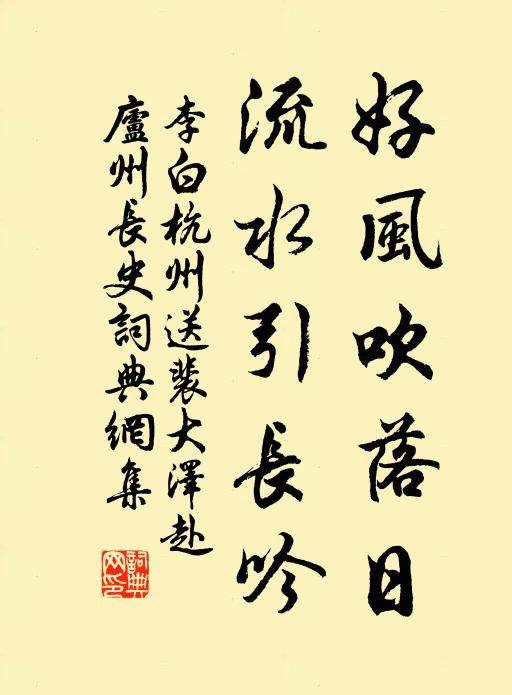 好風吹落日
流水引長吟
李白杭州送裴大澤赴
廬州長史詞典網集
詞典
网印